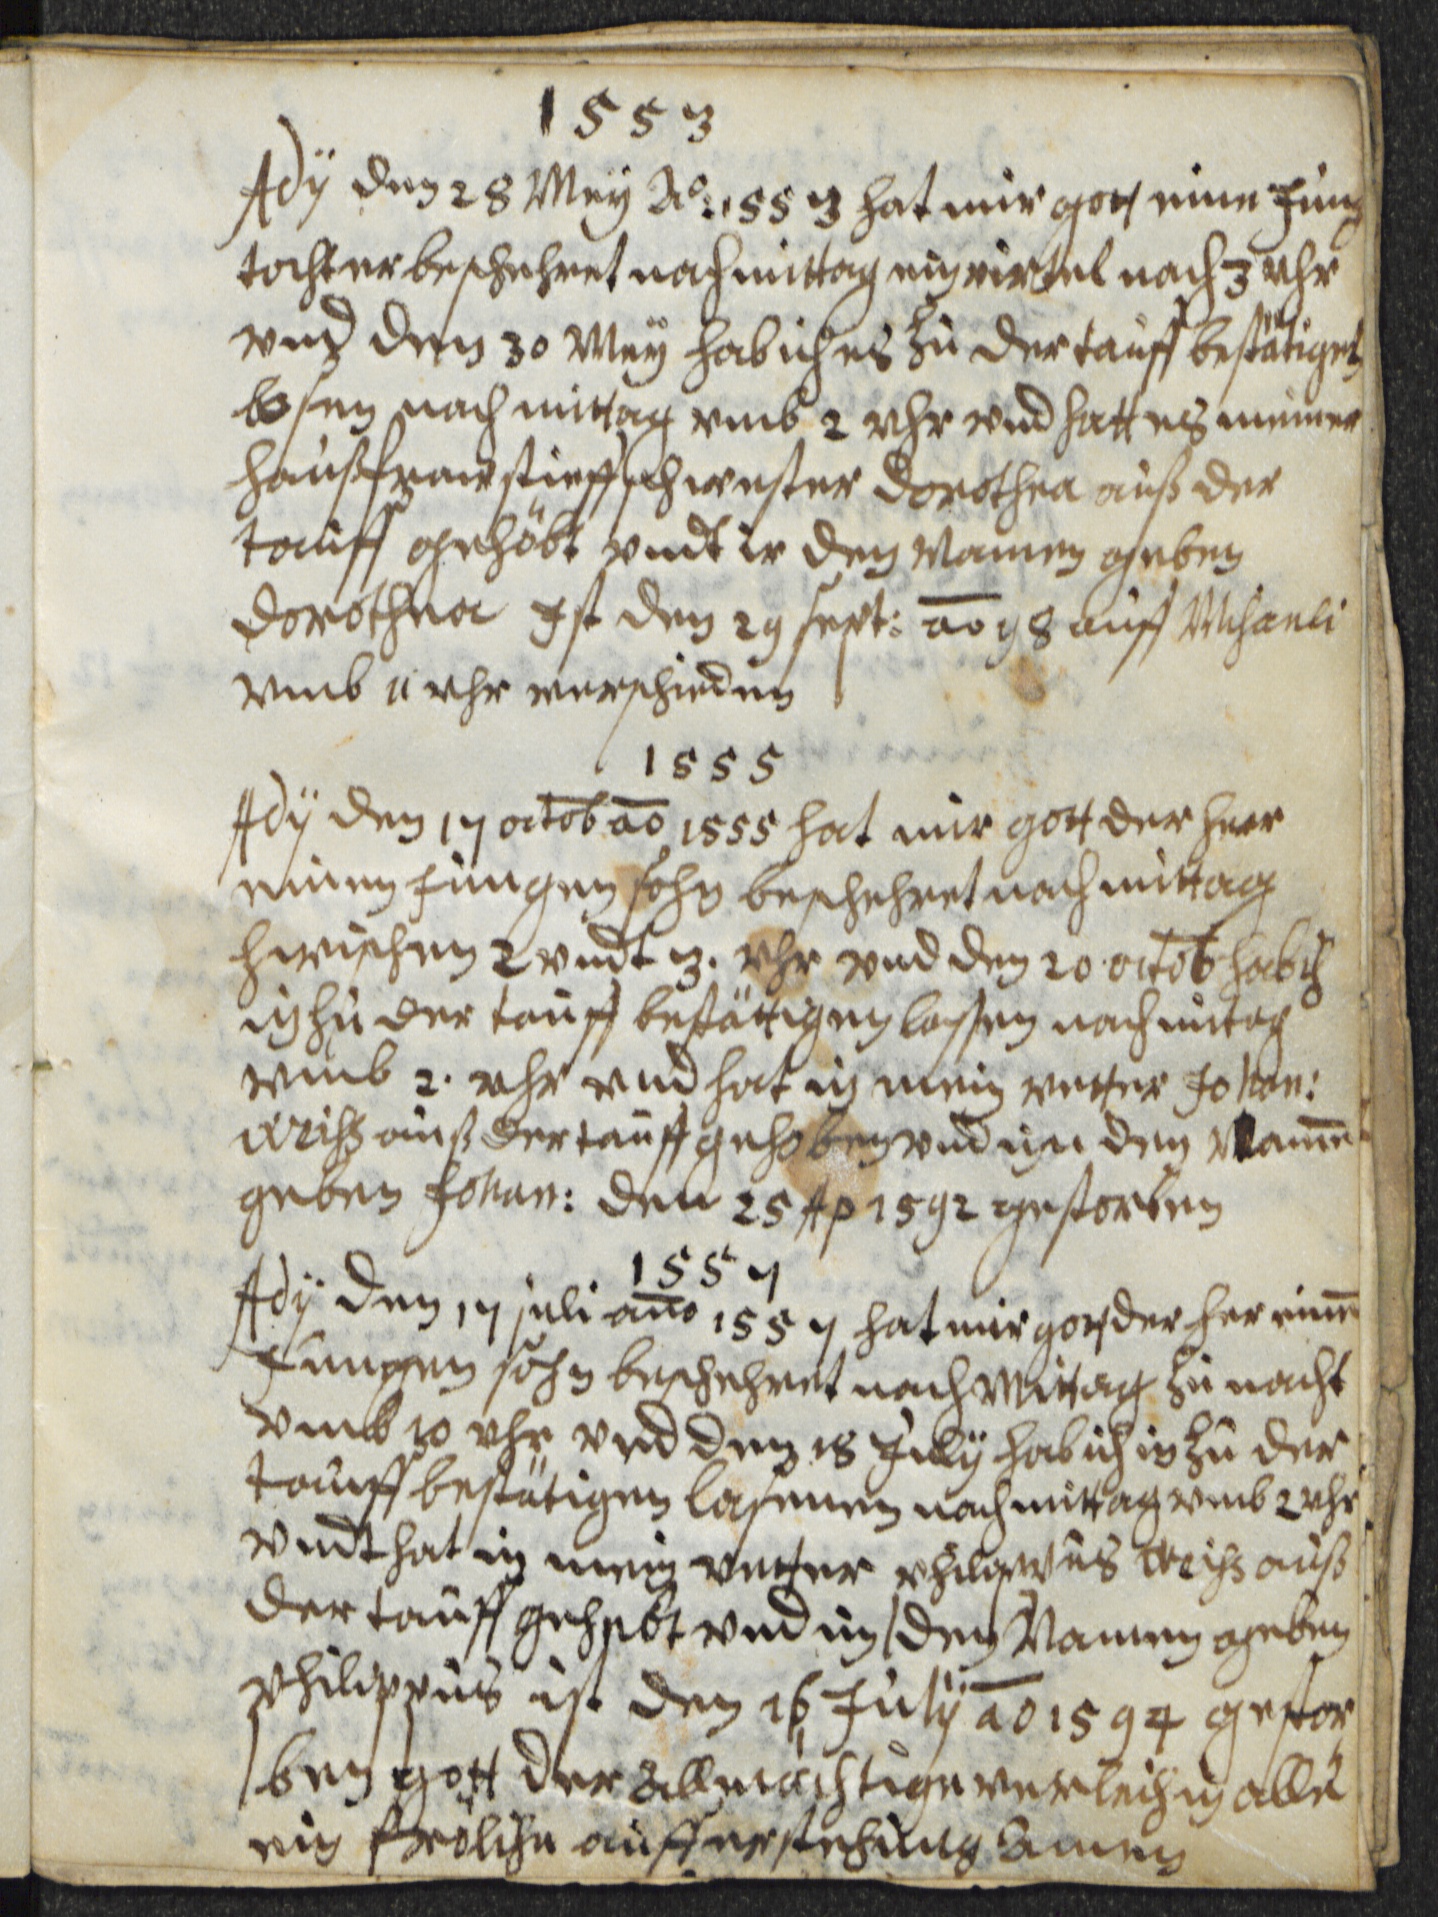 1553
Ady den 28 Mey Ao: 1553 hat mir gott eine Jung
tochter beschehret nachmittag ein virtel nach 3 vhr
vnd den 30 Mey hab ich es zu der tauff bestätiget
lasen nach mittag vmb 2 vhr vnd hatt es meiner
haußfraw stieffschwester Dorothea auß der
tauff gehöbt vndt ir den Namen geben
Dorothea Ist den 29 sept: ao 98 auff Michaeli
vmb 11 vhr verschieden
1555
Ady den 17 octob ao 1555 hat mir gott der herr
einen Jungen sohn beschehret nach mittag
zwischen 2 vndt 3. vhr vnd den 20 octob hab ich
in zu der tauff bestättigen lassen nach mitag
vmb 2. vhr vnd hat in mein vetter Johan:
Weiß auß der tauff gehoben vnd im den Namen
geben Johan: den 25 Ap 1592 gestorben
1557
Ady den 17 juli ano 1557 hat mir gott der her einen
Jungen sohn beschehret nach Mittag zu nacht
vmb 10 vhr vnd den 18 July hab ich in zu der
tauff bestätigen lasenen nach mittag vmb 2 vhr
vndt hat in mein vetter philippus Weiß auß
der tauff gehebt vnd im den Namen geben
Philippus ist den 16 July ao 1594 gestor
ben gott der Allmächtige verleih in allen
ein fröliche aufferstehung Amen